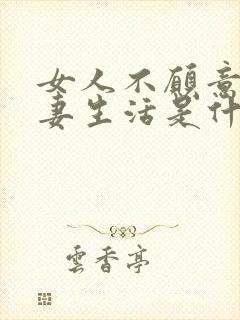 女人不愿意
妻生活是什
雲香亭